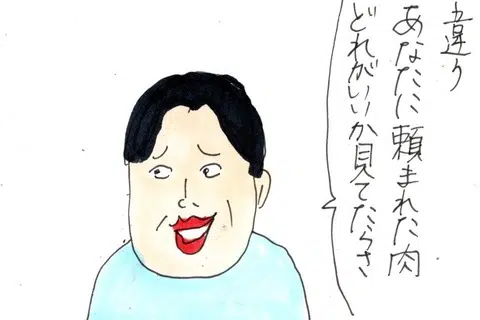 違り
あなたに頼まれた肉
どれがいいか見てたらさ